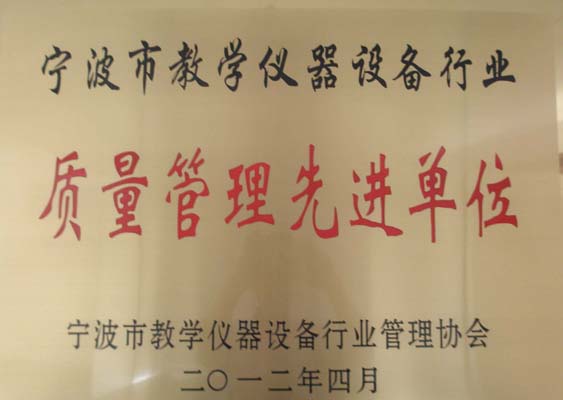 宁波市教学仪器设备行业
质量管理先进单位
宁波市教学仪器设备行业管理协会
二〇一二年四月